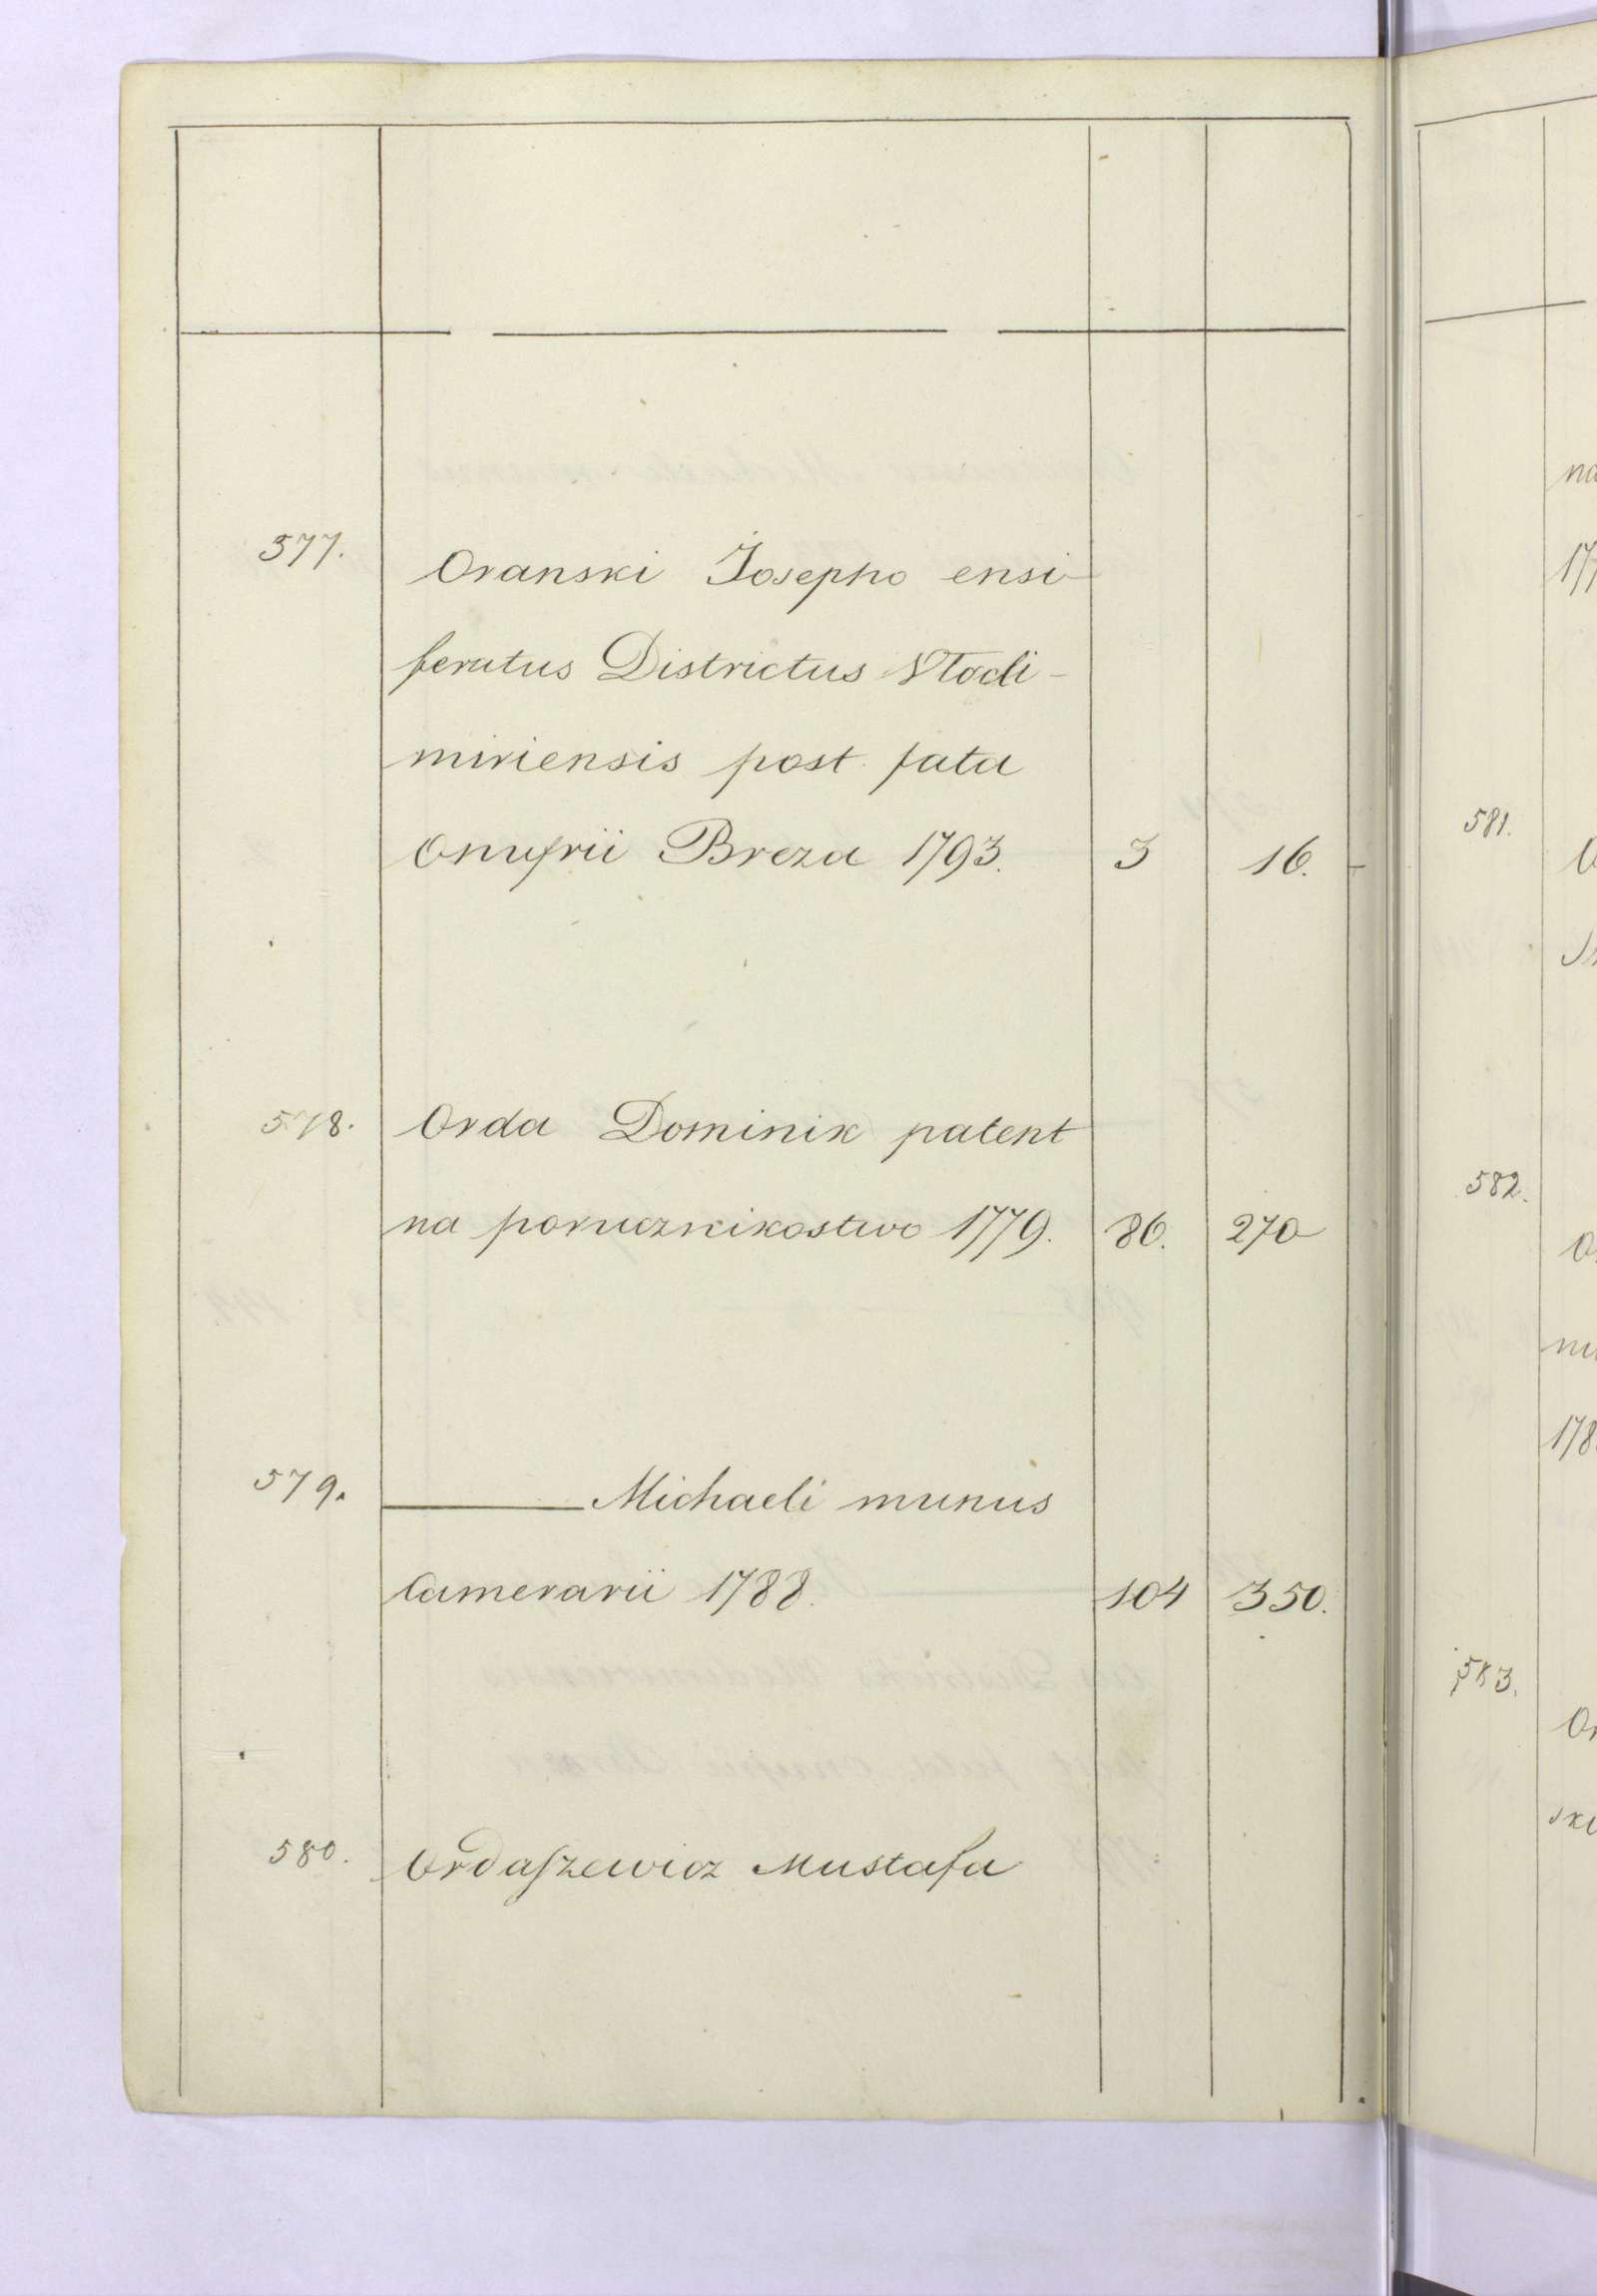 577. Oranski Josepho ensi-
feratus Districtus Vladi-
miriensis post fata
Onufrii Breza 1793. 3 16.
578. Orda Dominik patent
na porucznikostwo 1779. 86. 270
579. ——— Michaeli munus
Camerarii 1788. 104 350.
580. Ordaszewicz Mustafa
na
177
581.
582.
178
583.